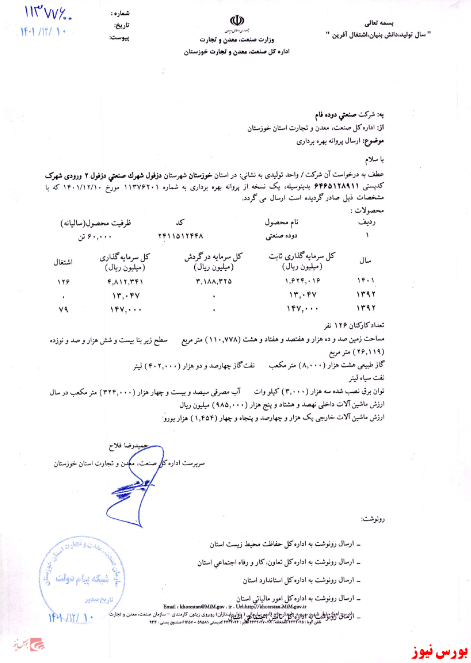 بسمه تعالی
" سال تولید،دانش بنیان،اشتغال آفرین "
وزارت صنعت، معدن و تجارت
اداره کل صنعت، معدن و تجارت خوزستان
شماره :
تاریخ:
۱۴۰۱/۱۲/۱۰
پیوست:
به: شرکت صنعتي دوده فام
از: اداره کل صنعت، معدن و تجارت استان خوزستان
موضوع: ارسال پروانه بهره برداری
با سلام
عطف به درخواست آن شرکت / واحد تولیدی به نشانی: در استان خوزستان شهرستان دزفول شهرك صنعتي دزفول ۲ ورودي شهرک
کدپستی ۶۴۶۵۱۲۸۹۱۱ بدینوسیله، یک نسخه از پروانه بهره برداری به شماره ۱۱۳۷۶۲۰۱ مورخ ۱۴۰۱/۱۲/۱۰ که با
مشخصات ذیل صادر گردیده است ارسال می گردد.
محصولات :
ردیف نام محصول کد ظرفیت محصول(سالیانه)
۱ دوده صنعتی ۲۴۱۱۵۱۲۴۴۸ ۶۰,۰۰۰ تن
سال کل سرمایه گذاری ثابت (میلیون ریال) کل سرمایه در گردش (میلیون ریال) کل سرمایه گذاری (میلیون ریال) اشتغال
۱۴۰۱ ۱,۶۲۴,۰۱۶ ۳,۱۸۸,۳۲۵ ۴,۸۱۲,۳۴۱ ۱۲۶
۱۳۹۲ ۱۳,۰۴۷ ۰ ۱۳,۰۴۷ ۰
۱۳۹۲ ۱۴۷,۰۰۰ ۰ ۱۴۷,۰۰۰ ۷۹
تعداد کارکنان ۱۲۶ نفر
مساحت زمین صد و ده هزار و هفتصد و هفتاد و هشت (۱۱۰,۷۷۸) متر مربع سطح زیر بنا بیست و شش هزار و صد و نوزده
(۲۶,۱۱۹) متر مربع
گاز طبیعی هشت هزار (۸,۰۰۰) متر مکعب نفت گاز چهارصد و دو هزار (۴۰۲,۰۰۰) لیتر
نفت سیاه لیتر
توان برق نصب شده سه هزار (۳,۰۰۰) کیلو وات آب مصرفی سیصد و بیست و چهار هزار (۳۲۴,۰۰۰) متر مکعب در سال
ارزش ماشین آلات داخلی نهصد و هشتاد و پنج هزار (۹۸۵,۰۰۰) میلیون ریال
ارزش ماشین آلات خارجی یک هزار و چهارصد و پنجاه و چهار (۱,۴۵۴) هزار یورو
حمیدرضا فلاح
سرپرست اداره کل صنعت، معدن و تجارت استان خوزستان
رونوشت:
ـ ارسال رونوشت به اداره کل حفاظت محیط زیست استان
ـ ارسال رونوشت به اداره کل تعاون، کار و رفاه اجتماعي استان
ـ ارسال رونوشت به اداره کل استاندارد استان
ـ ارسال رونوشت به اداره کل امور مالیاتي استان
Email : khorestan@MIM.gov . ir . Url:http://khorestan.MIM.gov.ir
شبکه پیام دولت
تاریخ صدور
۱۴۰۱/۱۲/۱۰
بورس نیوز